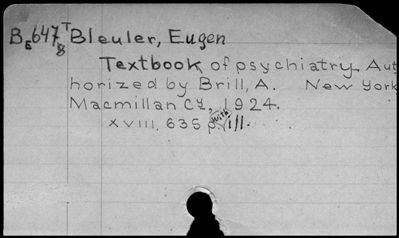 B6647 T8 Bleuler, Eugen
Textbook of psychiatry. Aut
horized by Brill, A. New York
Macmillan Cy, 1924.
XVIII, 635 p. with ill.